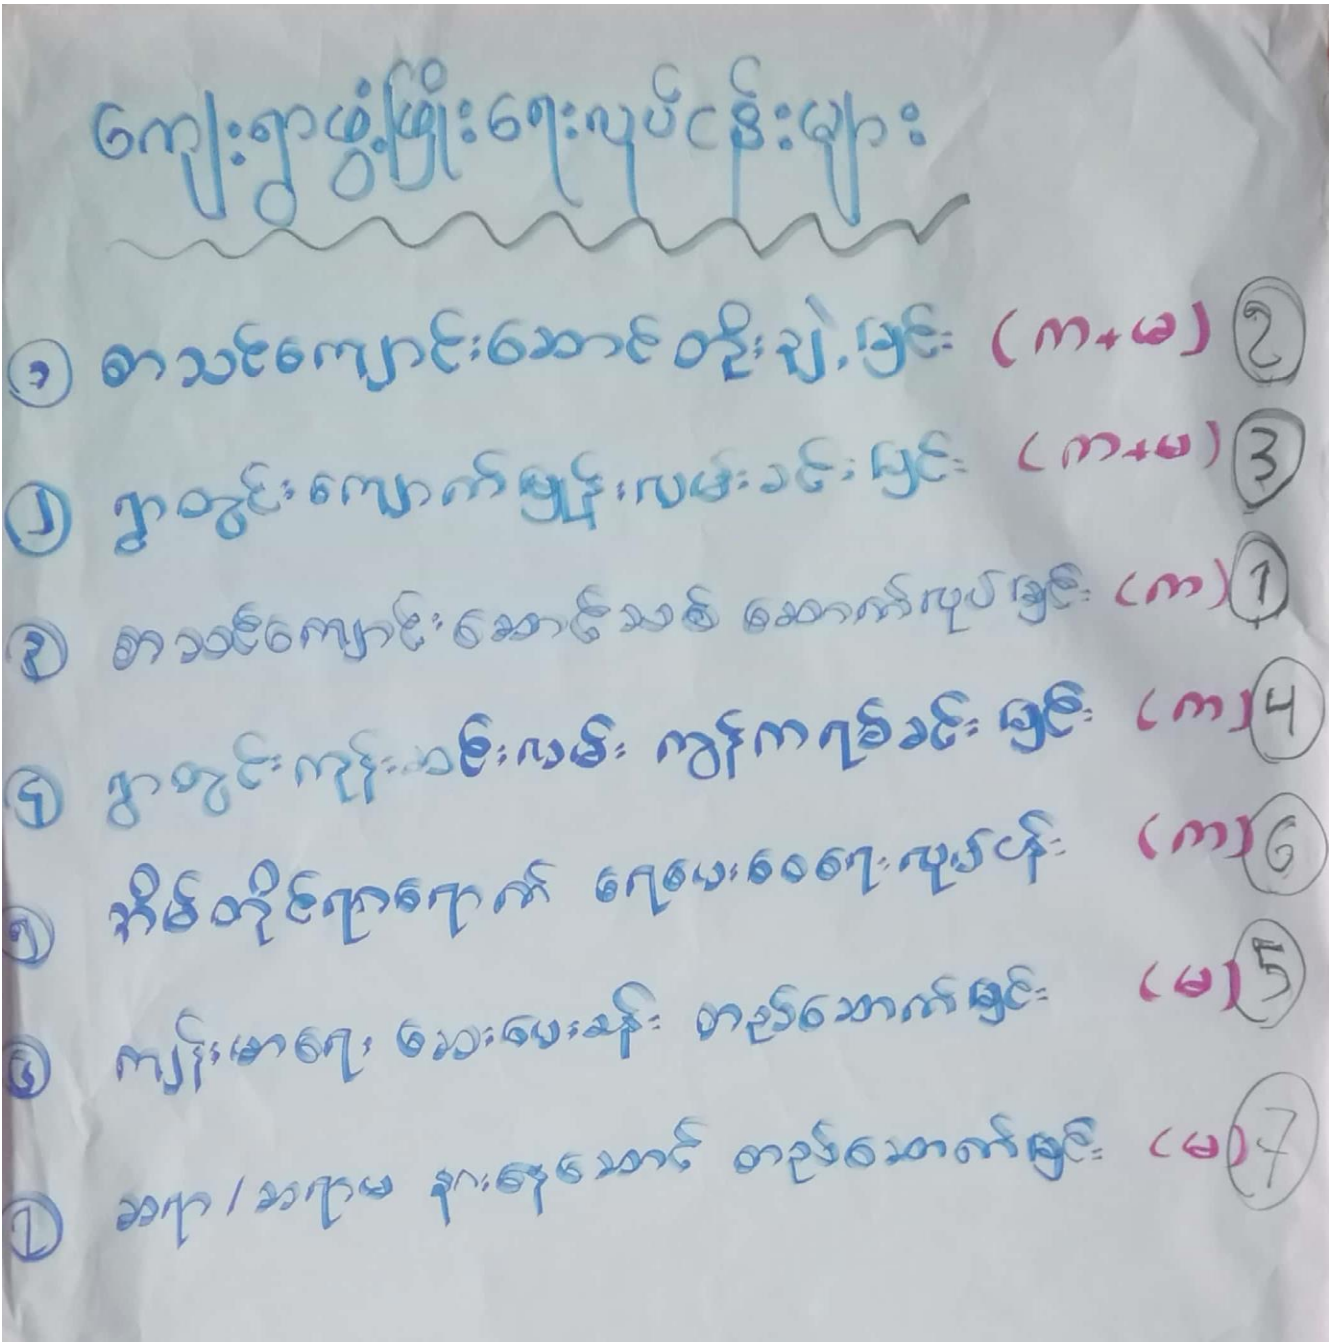 ကျေးရွာဖွံ့ဖြိုးရေးလုပ်ငန်းများ
၁ စာသင်ကျောင်းဆောင် တိုးချဲ့ခြင်း (ကာ+မ) 2
၂ ရွာတွင်းကျောက်ချော လမ်းခင်းခြင်း (ကာ+မ) 3
၃ စာသင်ကျောင်းဆောင်သစ် ဆောက်လုပ်ခြင်း (ကာ) 1
၄ ရွာတွင်းကုန်းလမ်း ကွန်ကရစ်ခင်းခြင်း (ကာ) 4
၅ အိမ်တိုင်ရာရောက် ရေပေးဝေရေးလုပ်ငန်း (ကာ) 6
၆ ကျန်းမာရေး ဆေးပေးခန်း တည်ဆောက်ခြင်း (မ) 5
၇ ဆရာ/ဆရာမ နားနေဆောင် တည်ဆောက်ခြင်း (မ) 7